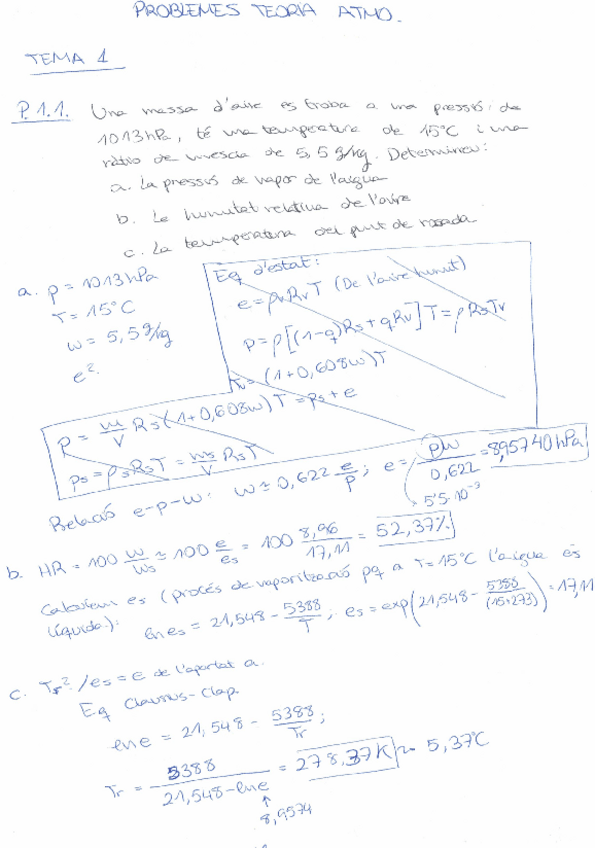 PROBLEMES TEORIA ATMO.
TEMA 1
P.1.1. Una massa d'aire es troba a una pressió de
1013hPa, té una temperatura de 15°C i una
ràtio de mescla de 5,5 g/kg. Determineu:
a. La pressió de vapor de l'aigua
b. La humitat relativa de l'aire
c. La temperatura del punt de rosada
a. p = 1013hPa
T = 15°C
w = 5,5 g/kg
e?
Eq d'estat:
e = ρv Rv T (De l'aire humit)
p = ρ[(1-q)Rs + qRv] T = ρ Rs Tv
Tv = (1+0,608w)T
p = m/V Rs (1+0,608w) T = ps + e
ps = ρs Rs T = ms/V Rs T
Relació e-p-w: w ≃ 0,622 e/p ; e = pw/0,622 = 8,95740 hPa
5'5·10⁻³
b. HR = 100 w/ws ≃ 100 e/es = 100 8,96/17,11 = 52,37%
Calculem es (procés de vaporització pq a T=15°C l'aigua és
líquida.): ln es = 21,548 - 5388/T ; es = exp(21,548 - 5388/(15+273)) = 17,11
c. Tr? / es = e de l'apartat a.
Eq Clausius-Clap.
ln e = 21,548 - 5388/Tr ;
Tr = 5388/(21,548 - ln e) = 278,37K ~ 5,37°C
8,9574